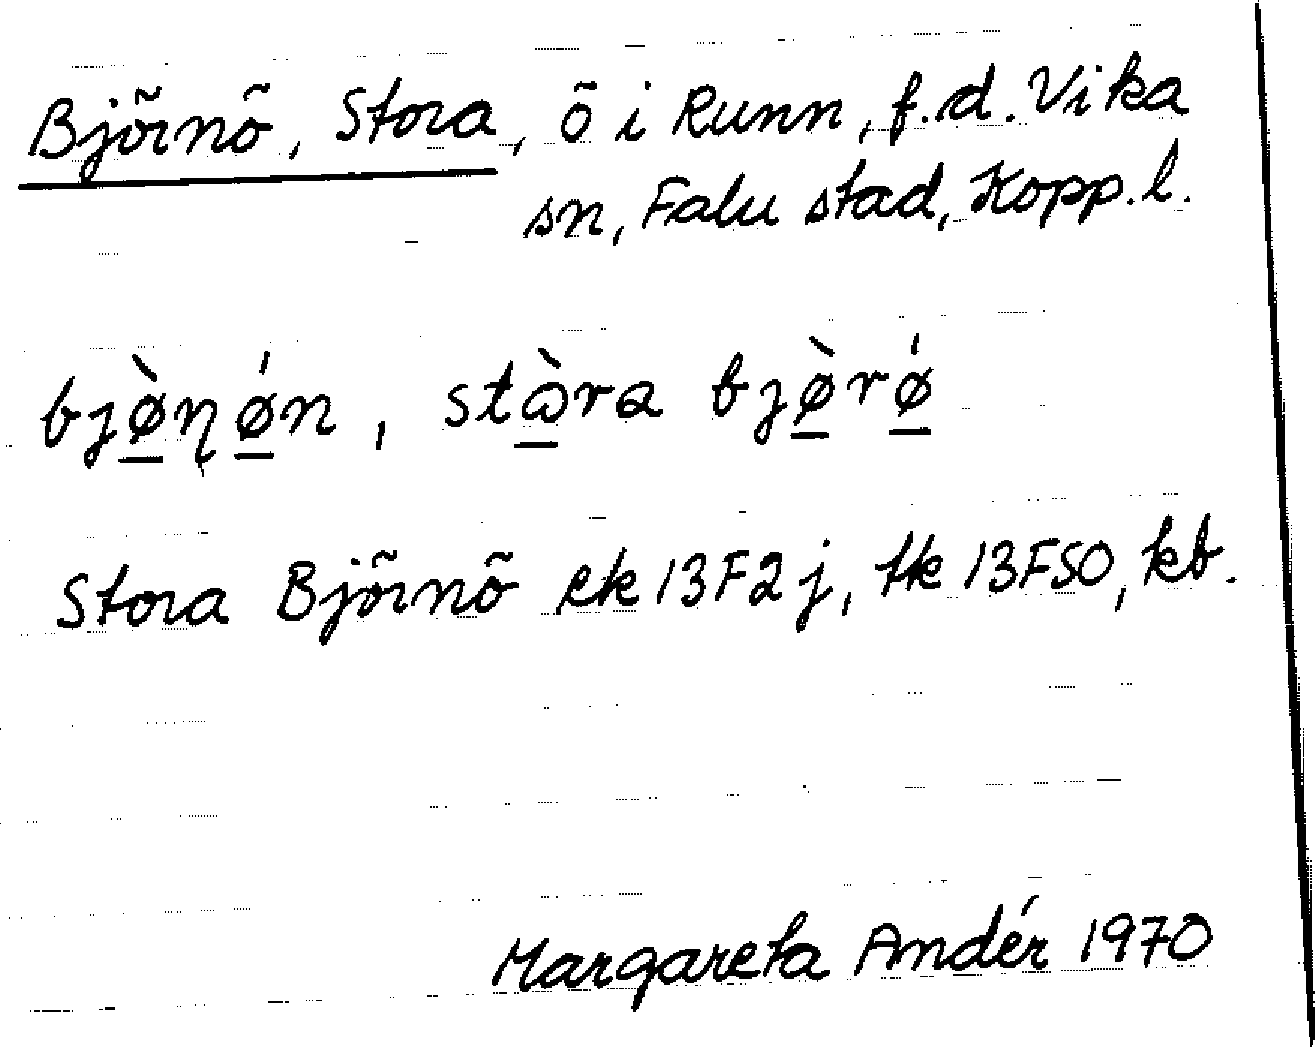 Björnö, Stora, ö i Runn, f.d. Vika
sn, Falu stad, Kopp. l.
bjø̲̀ɳǿ̲n, stɷ̲̀ra bjø̲̀rǿ̲
Stora Björnö ek 13F2j, tk 13F50, kb.
Margareta Andér 1970